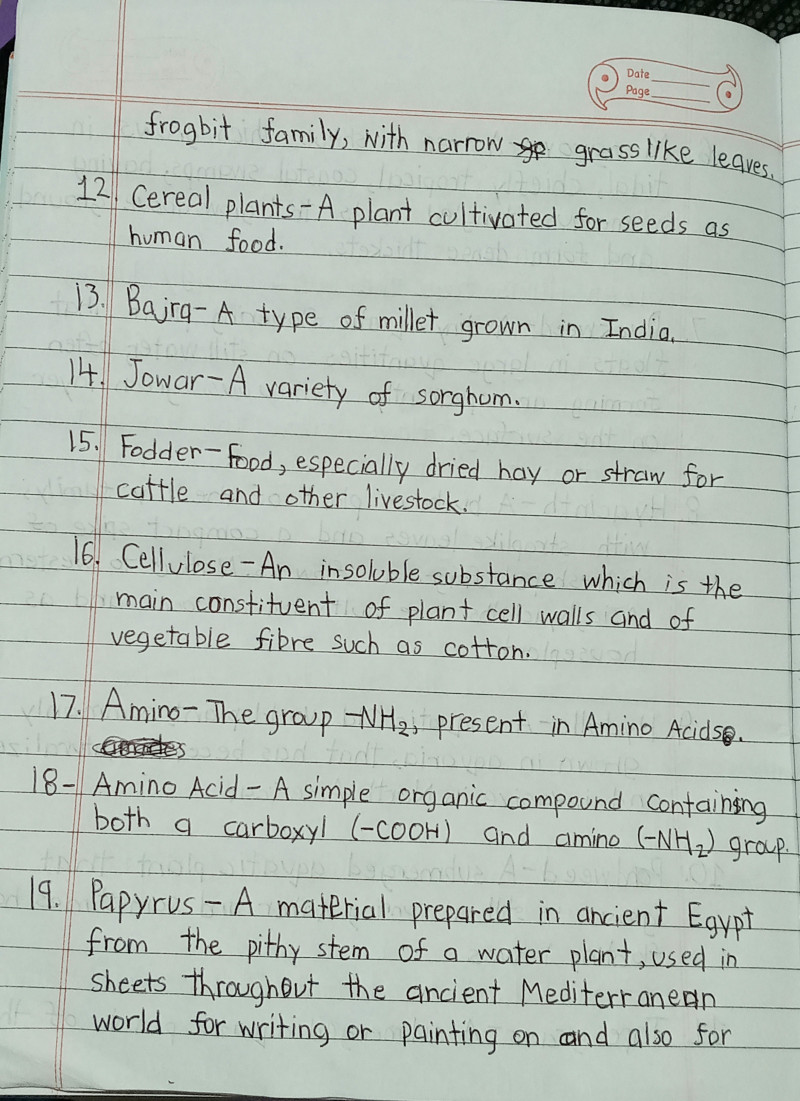 Date
Page
frogbit family, with narrow grasslike leaves.
12. Cereal plants - A plant cultivated for seeds as
human food.
13. Bajra - A type of millet grown in India.
14. Jowar - A variety of sorghum.
15. Fodder - Food, especially dried hay or straw for
cattle and other livestock.
16. Cellulose - An insoluble substance which is the
main constituent of plant cell walls and of
vegetable fibre such as cotton.
17. Amino - The group -NH₂, present in Amino Acids.
18- Amino Acid - A simple organic compound containing
both a carboxyl (-COOH) and amino (-NH₂) group.
19. Papyrus - A material prepared in ancient Egypt
from the pithy stem of a water plant, used in
sheets throughout the ancient Mediterranean
world for writing or painting on and also for